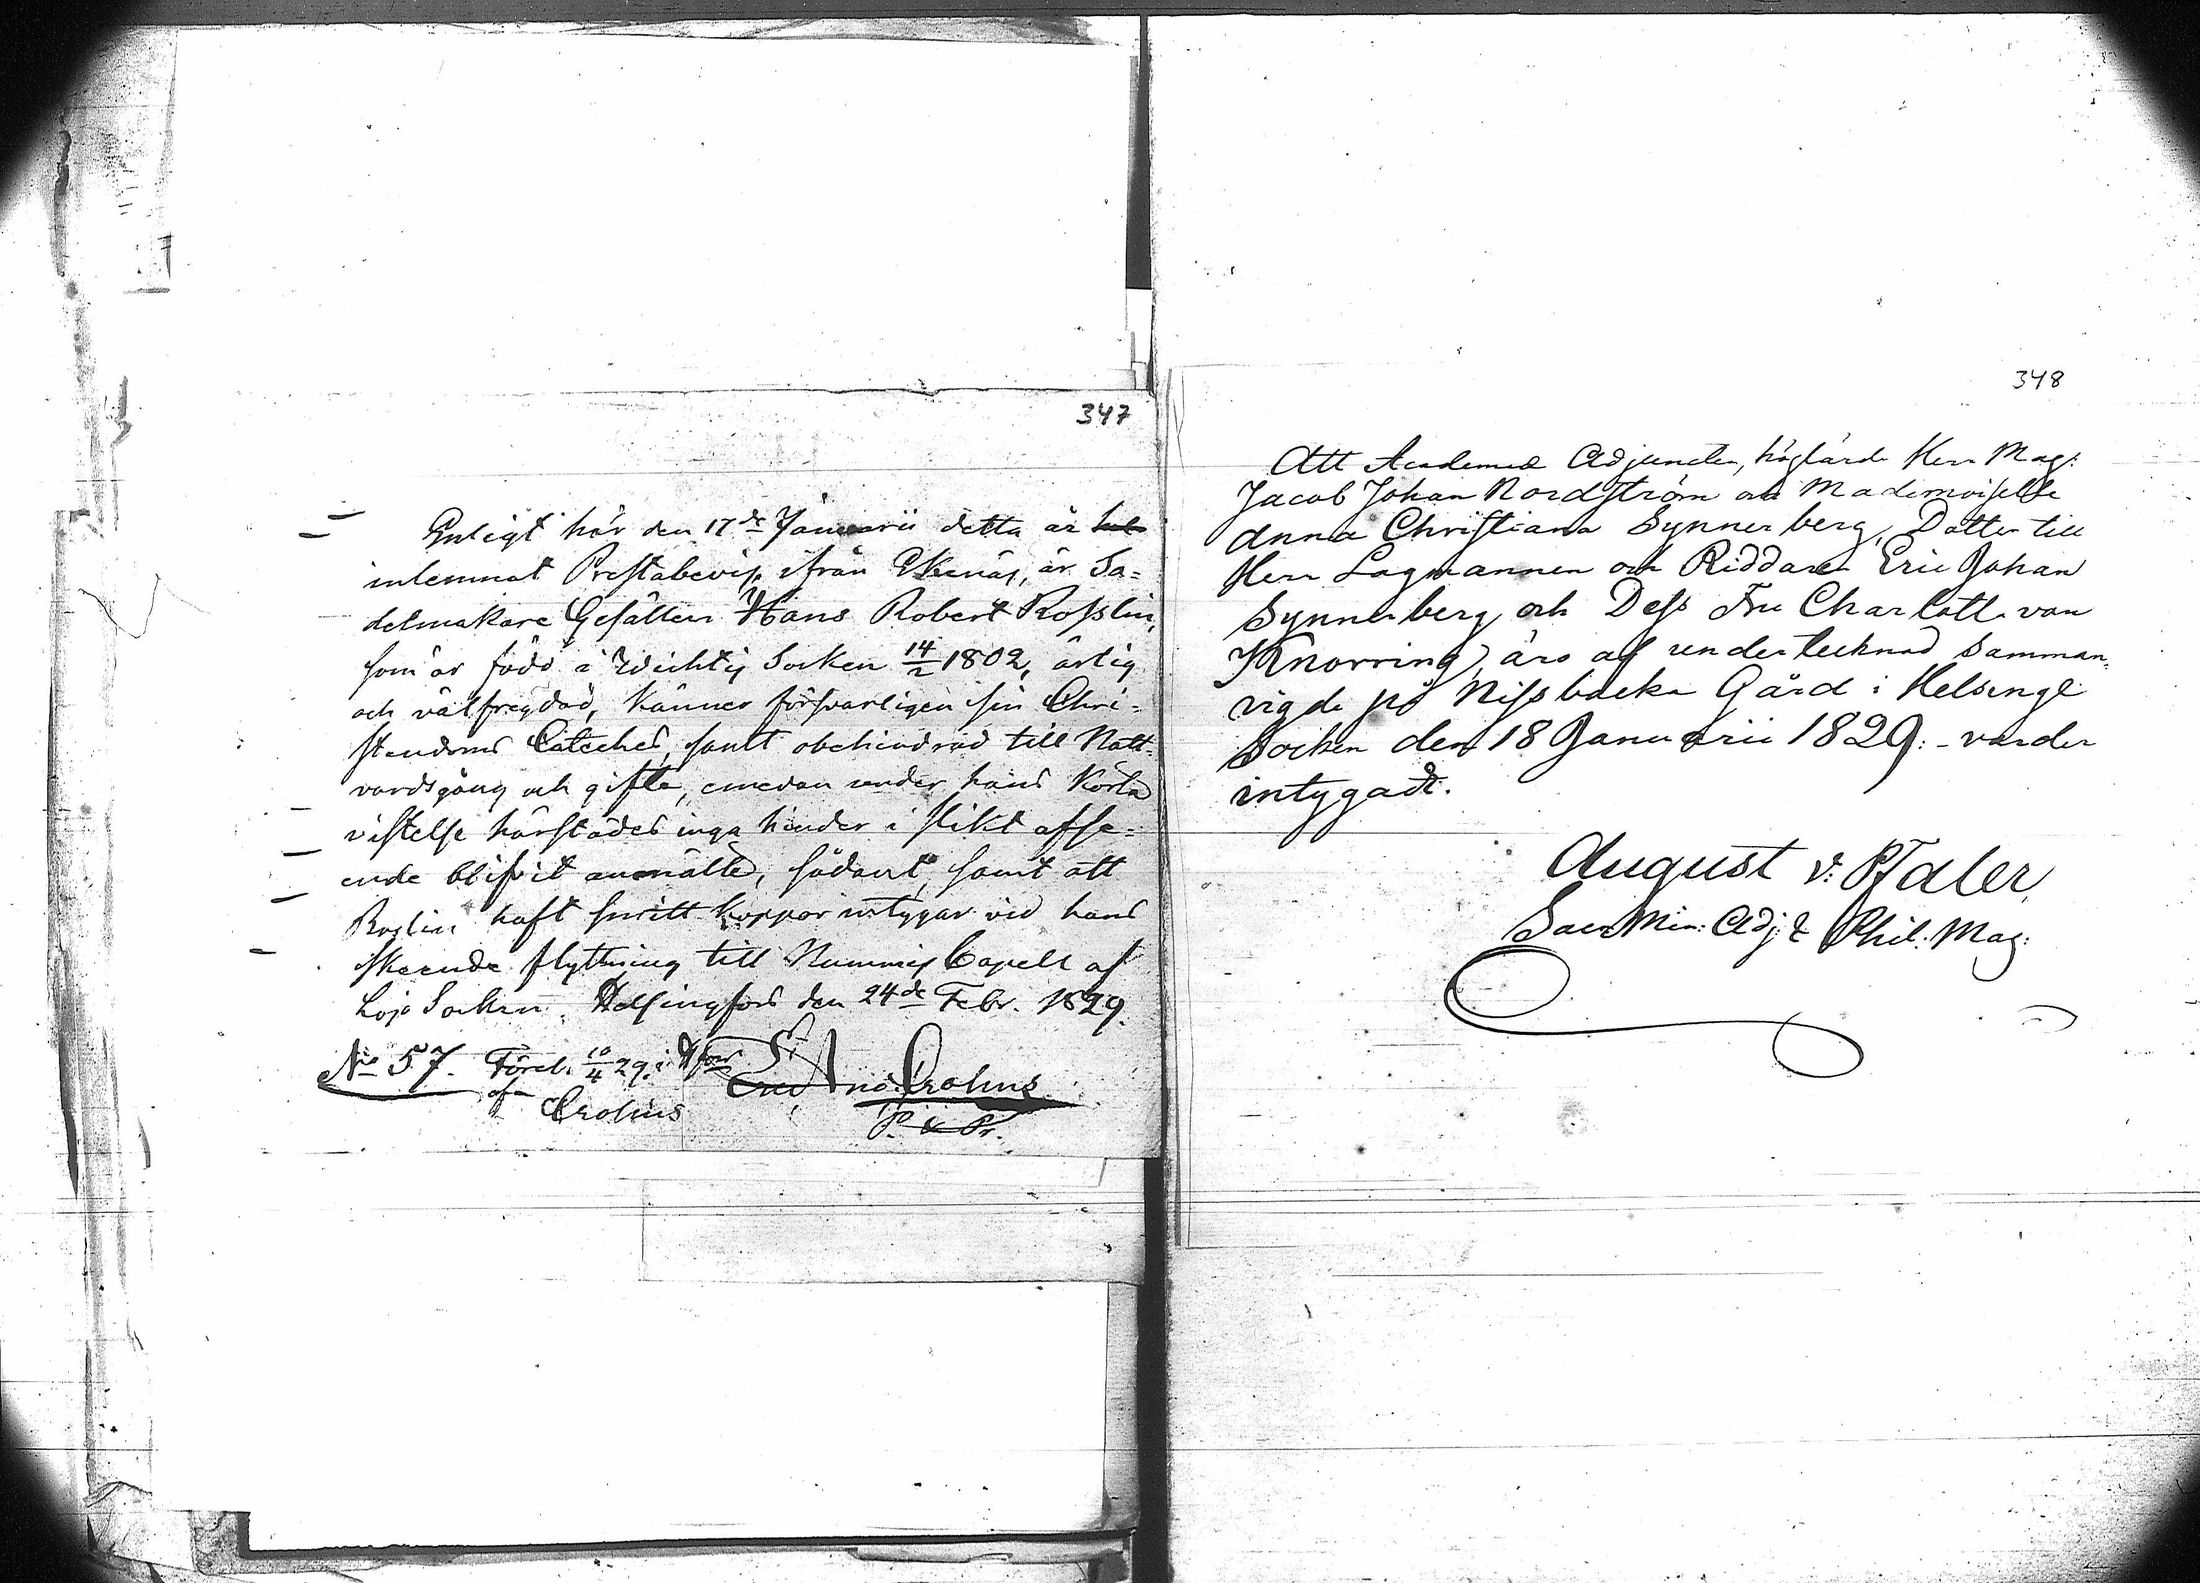 347
Enligt här den 17de Januarii detta år
inlemnat Prestabevis ifrån Ekenäs, är Sa=
delmakare Gesällen Hans Robert Rosslin,
som är född i Wichtis Socken 14/2 1802, ärlig
och välfrejdad, känner försvarligen sin Chri=
stendoms Cateches, samt obehindrad till Natt=
vardsgång och gifte, emedan under hans korta
vistelse härstädes inga hinder i slikt afse=
ende blifvit anmälte, sådant, samt att
Roslin haft smitt koppor intygar vid hans
skeende flyttning till Nummis Capell af
Lojo Socken. Helsingfors den 24de Febr. 1829.
No 57. Förel. 10/4 29. i Hfors
af Crohns
Crohns
P. & Pr.
348
Att Academiæ Adjuncten, höglärde Herr Mag:
Jacob Johan Nordström och Mademoiselle
Anna Christiana Synnerberg, Dotter till
Herr Lagmannen och Riddaren Eric Johan
Synnerberg och Dess Fru Charlott. von
Knorring, äro af undertecknad samman=
vigde på Nissbacka Gård i Helsinge
Socken den 18 Januarii 1829: - varder
intygadt.
August v: Pfaler,
Sacr. Min: Adj: & Phil: Mag: